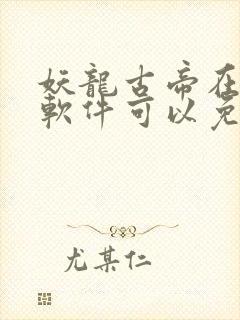 妖龍古帝在
軟件可以免
尤某仁